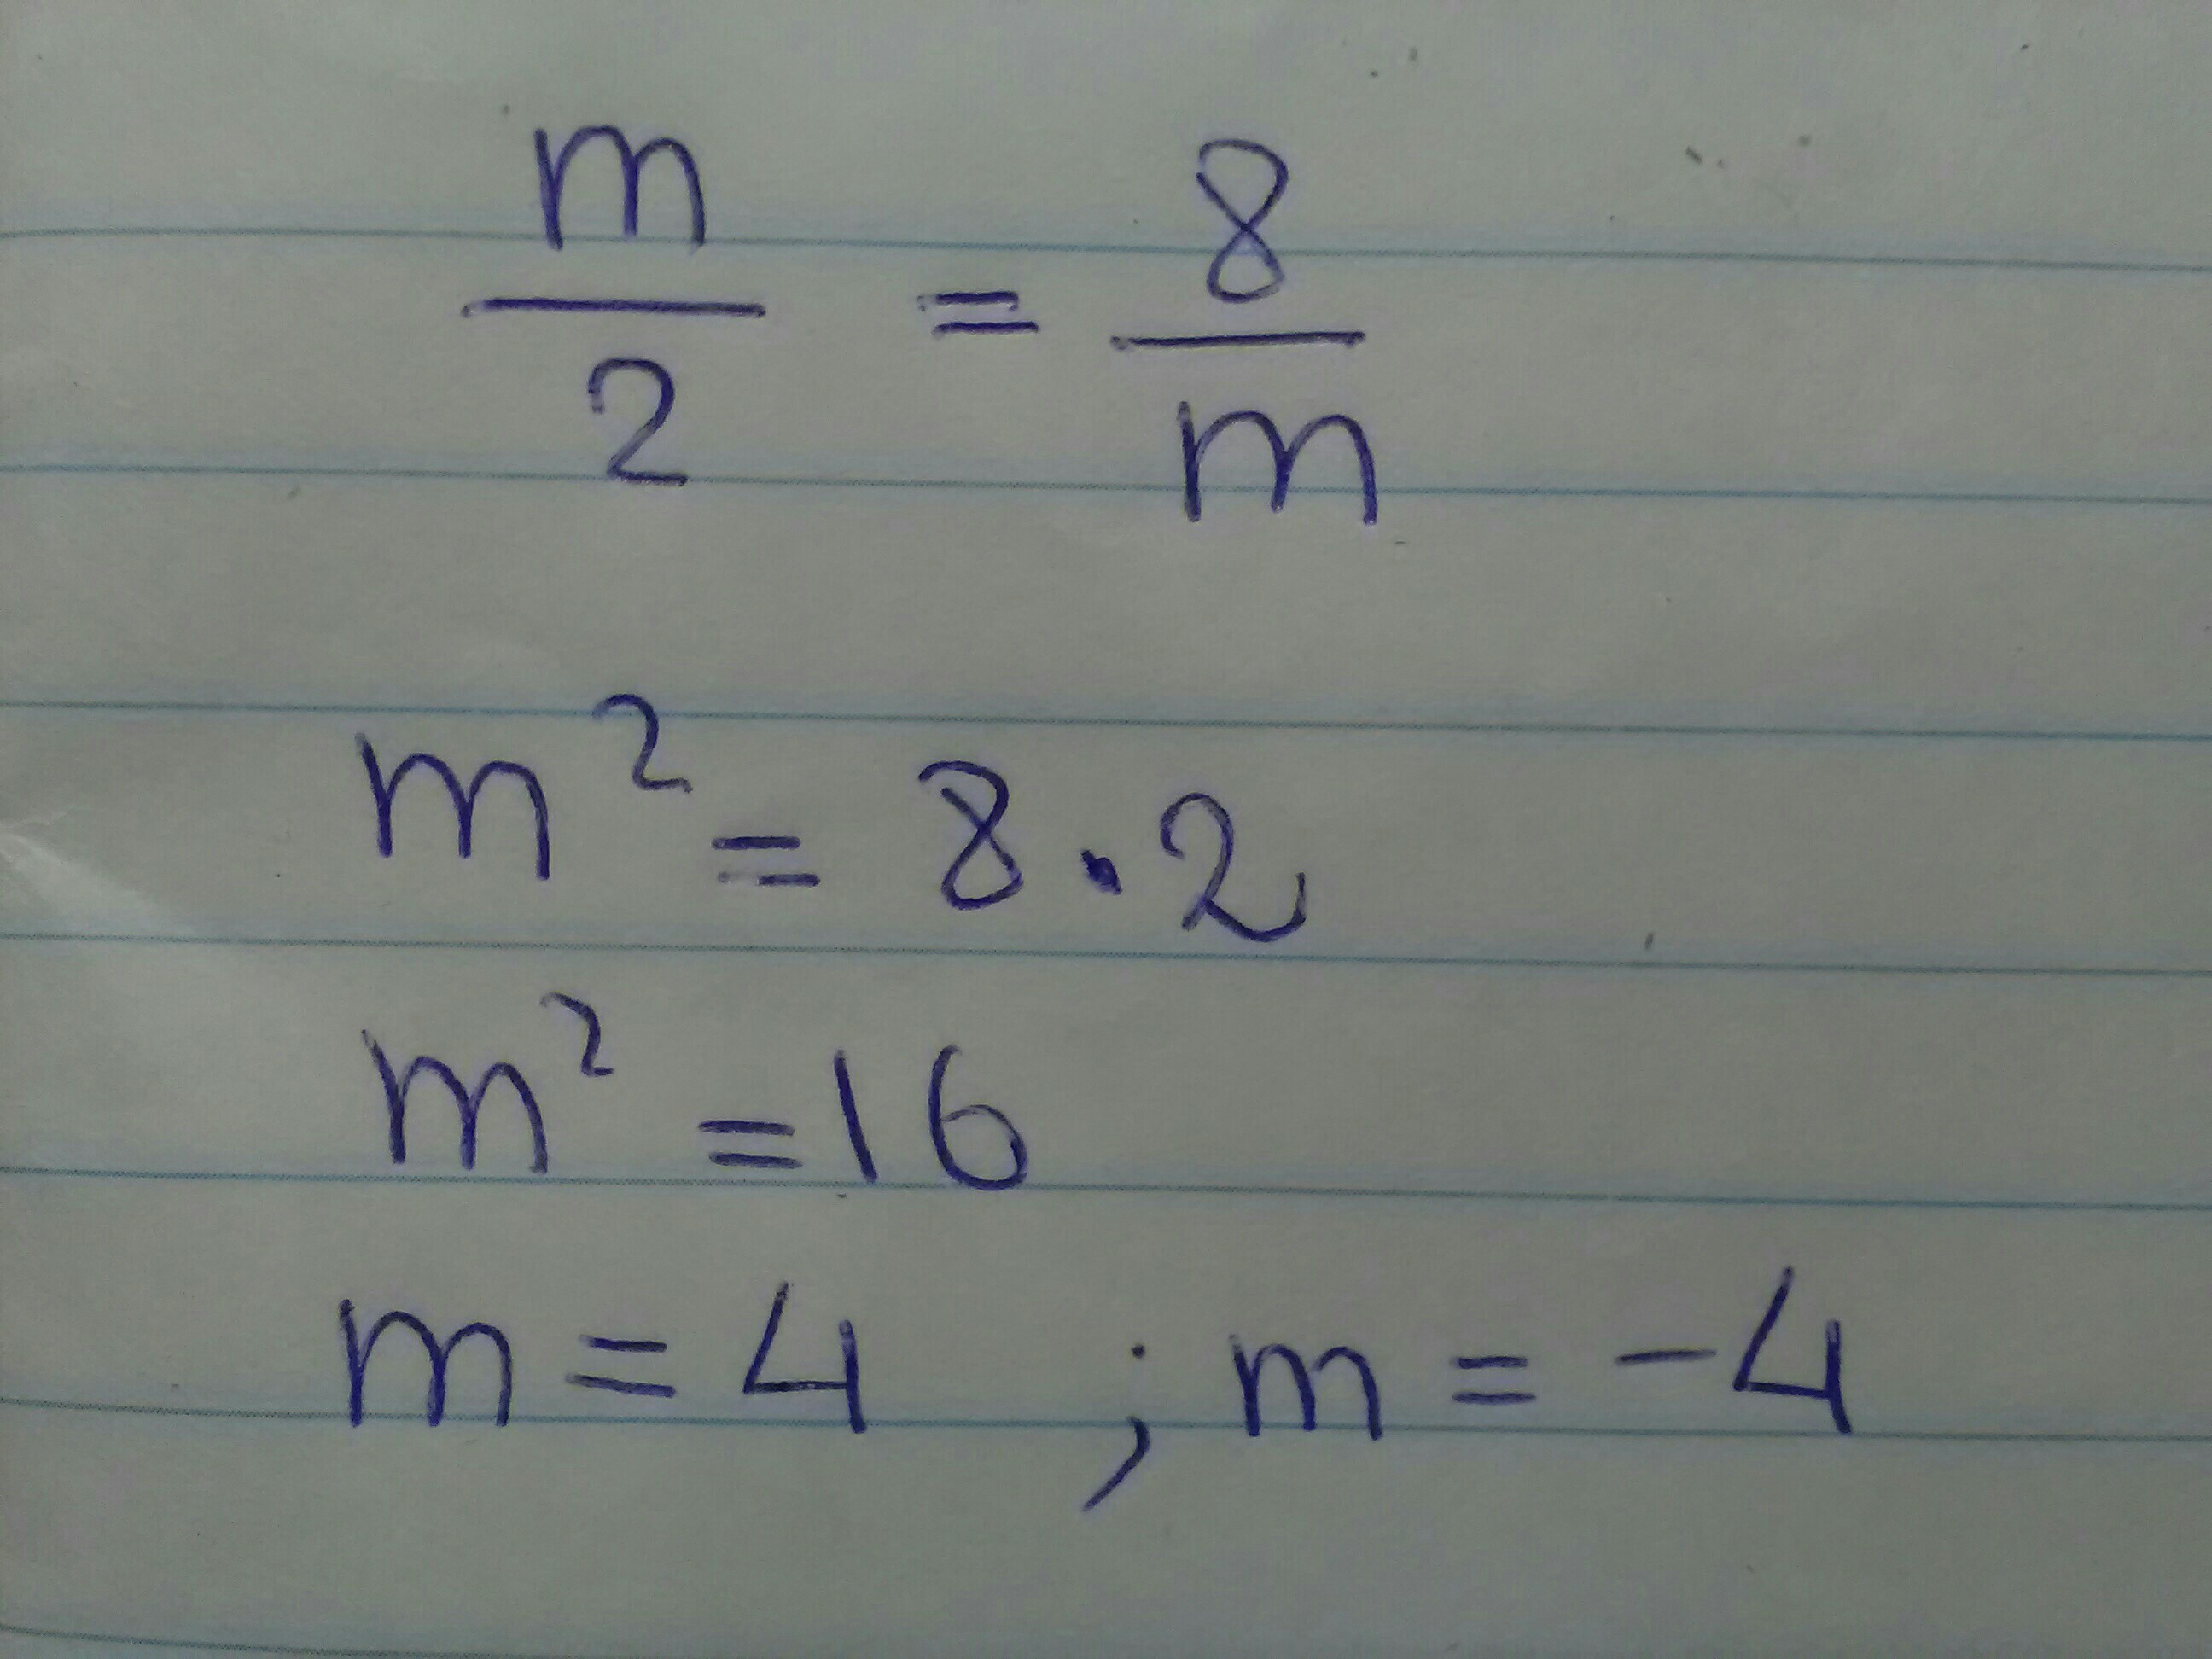 m/2 = 8/m
m² = 8 · 2
m² = 16
m = 4 ; m = -4